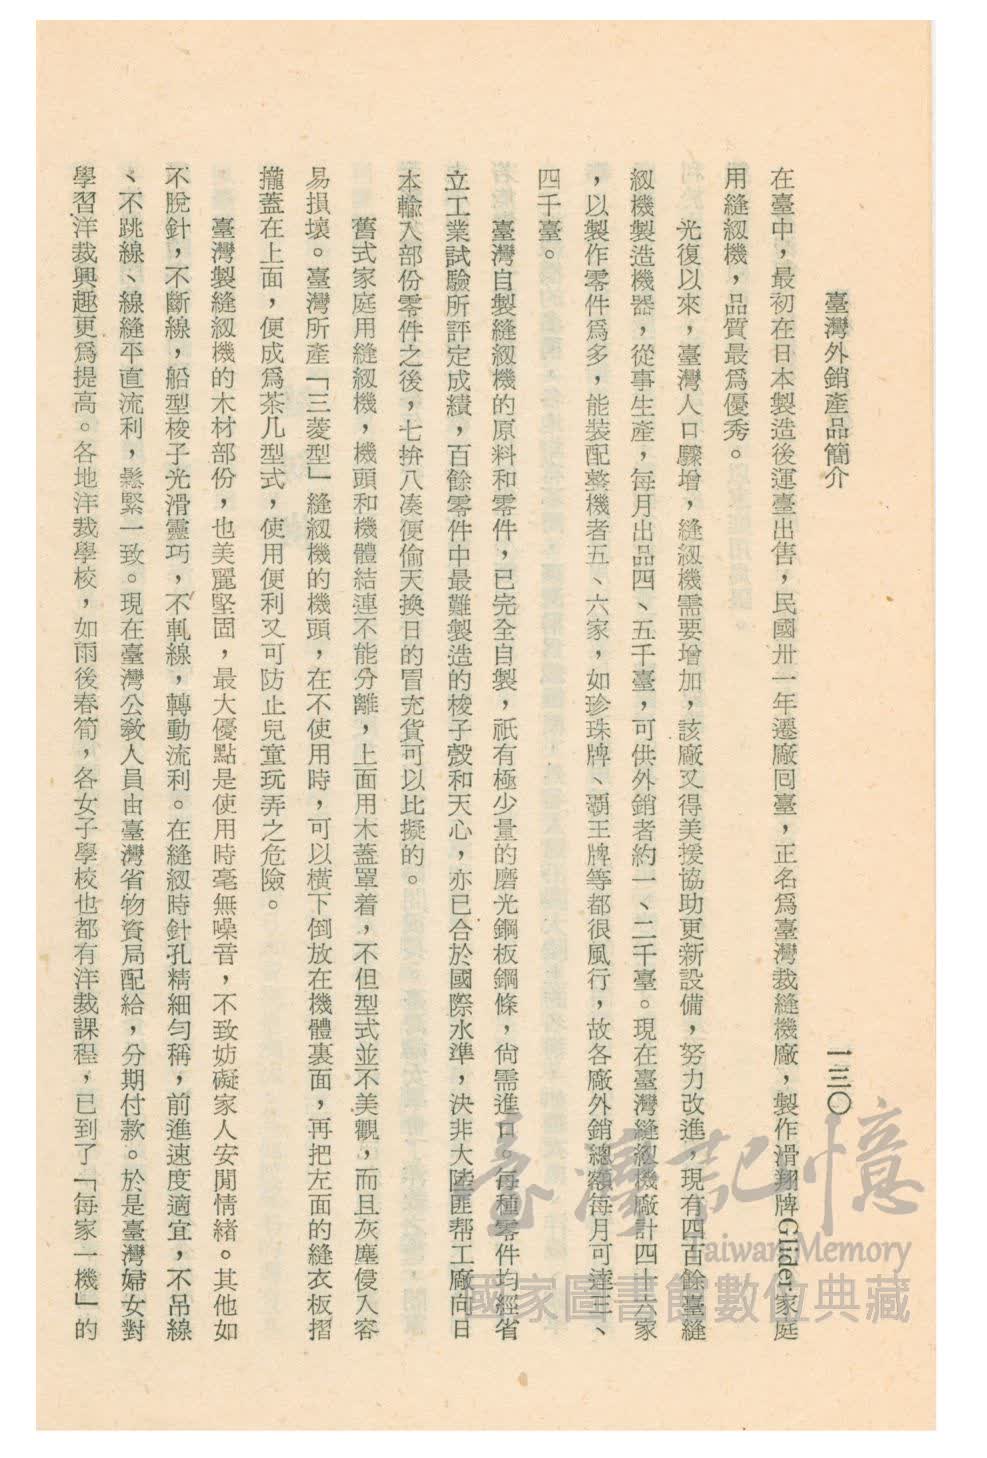 臺灣外銷產品簡介
一三〇
在臺中，最初在日本製造後運臺出售，民國卅一年遷廠囘臺，正名爲臺灣裁縫機廠，製作滑翔牌Glider家庭
用縫紉機，品質最爲優秀。
光復以來，臺灣人口驟增，縫紉機需要增加，該廠又得美援協助更新設備，努力改進，現有四百餘臺縫
紉機製造機器，從事生產，每月出品四、五千臺，可供外銷者約一、二千臺。現在臺灣縫紉機廠計四十六家
，以製作零件爲多，能裝配整機者五、六家，如珍珠牌、覇王牌等都很風行，故各廠外銷總額每月可達三、
四千臺。
臺灣自製縫紉機的原料和零件，已完全自製，祇有極少量的磨光鋼板鋼條，尙需進口。每種零件均經省
立工業試驗所評定成績，百餘零件中最難製造的梭子殼和天心，亦已合於國際水準，決非大陸匪帮工廠向日
本輸入部份零件之後，七拚八凑便偷天換日的冒充貨可以比擬的。
舊式家庭用縫紉機，機頭和機體結連不能分離，上面用木蓋罩着，不但型式並不美觀，而且灰塵侵入容
易損壞。臺灣所產「三菱型」縫紉機的機頭，在不使用時，可以橫下倒放在機體裏面，再把左面的縫衣板摺
攏蓋在上面，便成爲茶几型式，使用便利又可防止兒童玩弄之危險。
臺灣製縫紉機的木材部份，也美麗堅固，最大優點是使用時毫無噪音，不致妨礙家人安閒情緒。其他如
不脫針，不斷線，船型梭子光滑靈巧，不軋線，轉動流利。在縫紉時針孔精細勻稱，前進速度適宜，不吊線
、不跳線、線縫平直流利，鬆緊一致。現在臺灣公敎人員由臺灣省物資局配給，分期付款。於是臺灣婦女對
學習洋裁興趣更爲提高。各地洋裁學校，如雨後春筍，各女子學校也都有洋裁課程，已到了「每家一機」的
臺灣記憶
Taiwan Memory
國家圖書館數位典藏